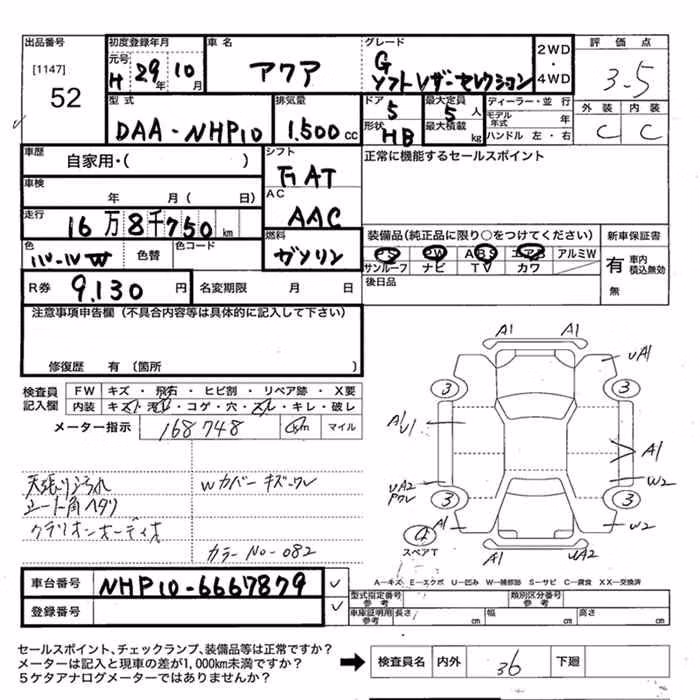 出品番号 初度登録年月 車名 グレード 2WD・4WD 評価点
[1147] 52
元号 H 29年 10月 アクア G ソフトレザーセレクション 3.5
外装 内装 C C
型式 排気量 ドア 最大定員 ディーラー・並行
DAA-NHP10 1.500cc 5 5人 モデル年式 年
形状 HB 最大積載 kg ハンドル 左・右
車歴 シフト 正常に機能するセールスポイント
自家用・( ) FAT
車検 年 月( 日) AC AAC
走行 16万8千750km 燃料 ガソリン
装備品(純正品に限り○をつけてください) 新車保証書
PS PW ABS エアB アルミW
サンルーフ ナビ TV カワ
有 車内積込無効
無
色 パールW 色替 色コード
後日品
R券 9,130円 名変期限 月 日
注意事項申告欄(不具合内容等は具体的に記入して下さい)
修復歴 有(箇所 )
検査員記入欄 FW キズ・飛石・ヒビ割・リペア跡・X要
内装 キズ・汚れ・コゲ・穴・スレ・キレ・破レ
メーター指示 168748 km マイル
天張り汚れ Wカバーキズ・ワレ
シート角ヘタリ
クラリオンオーディオ
カラーNo-082
A1 A1
uA1
3 3
A1 U1
A1
uA2 Pワレ W2
3 3
A1 W2
4 スペアT
A1 uA2
車台番号 NHP10-6667879
登録番号
A―キズ E―エクボ U―凹み W―補修跡 S―サビ C―腐食 XX―交換済
型式指定番号 参考 類別区分番号 参考
車庫証明用 参考 長さ cm 幅 cm 高さ cm
セールスポイント、チェックランプ、装備品等は正常ですか?
メーターは記入と現車の差が1,000km未満ですか?
5ケタアナログメーターではありませんか?
検査員名 内外 36 下廻